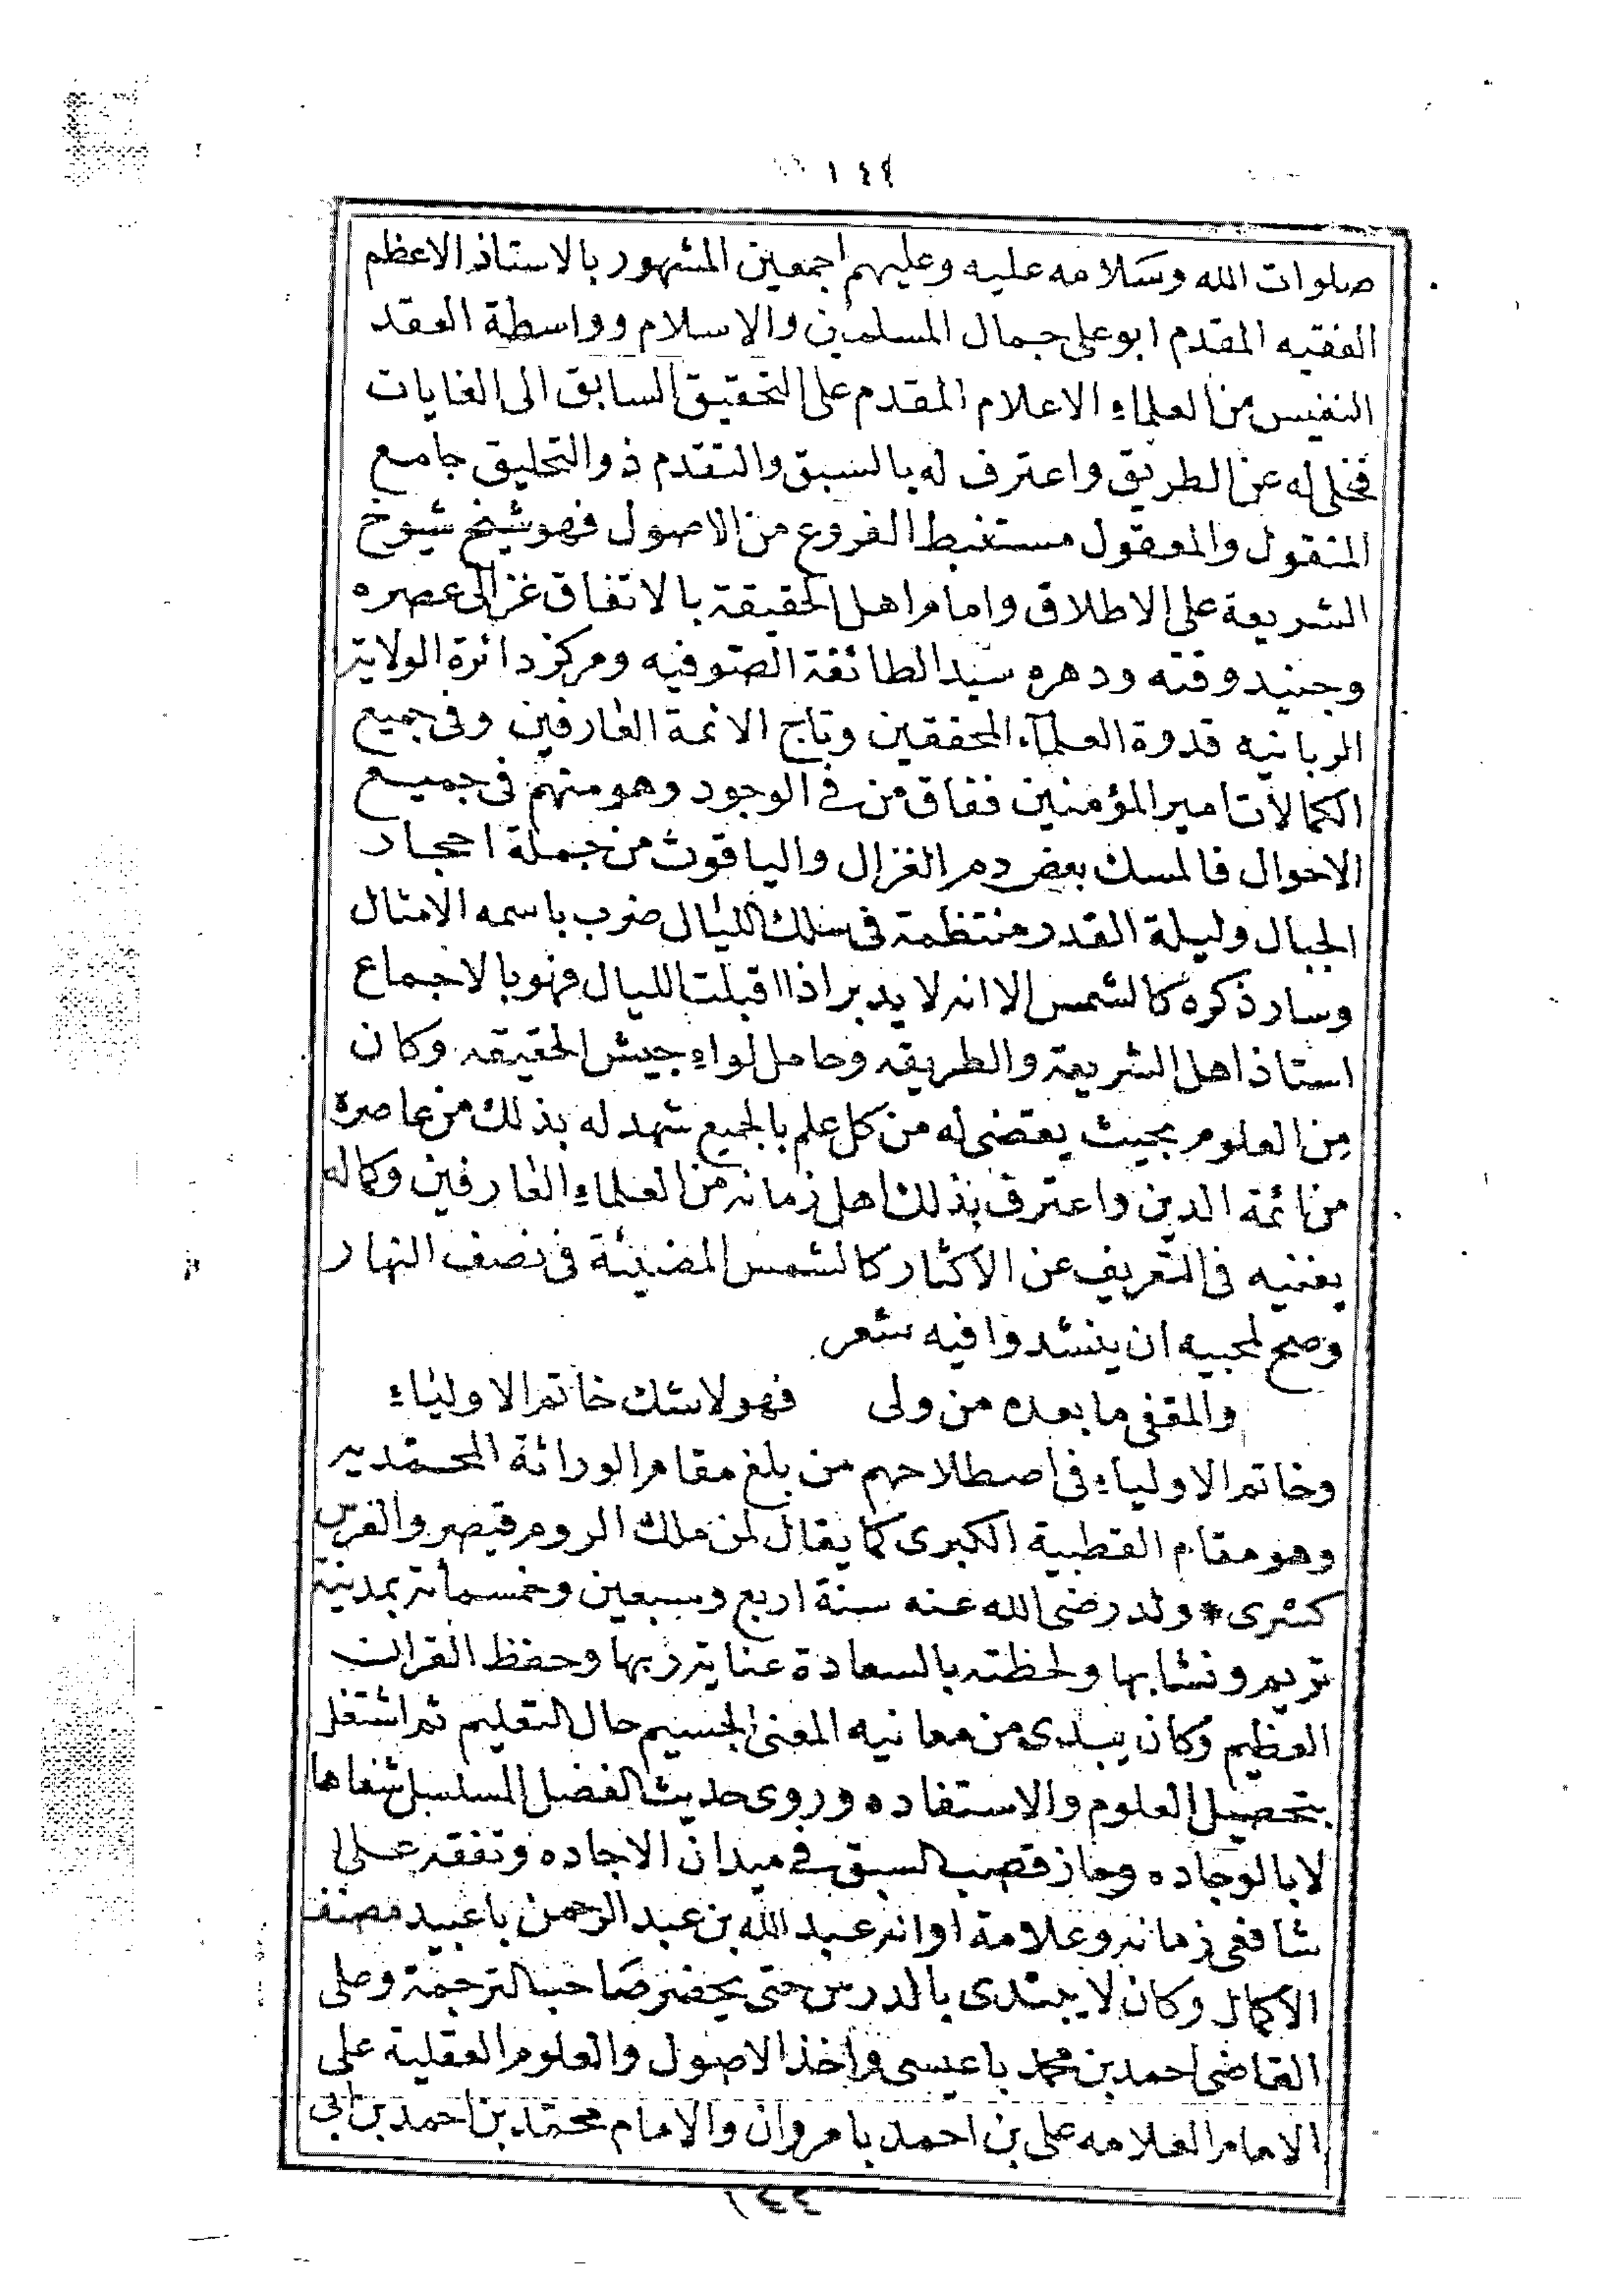 ١٤٩
صلوات الله وسلامه عليه وعليهم اجمعين المشهور بالاستاذ الاعظم
الفقيه المقدم ابوعلى جمال المسلمين والاسلام وواسطة العقد
النفيس من العلماء الاعلام المقدم على التحقيق السابق الى الغايات
فخلى له عن الطريق واعترف له بالسبق والتقدم ذوالتحليق جامع
المنقول والمعقول مستنبط الفروع من الاصول فهو شيخ شيوخ
الشريعة على الاطلاق وامام اهل الحقيقة بالاتفاق غزالى عصره
وجنيد وقته ودهره سيد الطائفة الصوفيه ومركز دائرة الولاية
الربانيه قدوة العلمآء المحققين وتاج الائمة العارفين وفى جميع
الكمالات امير المؤمنين ففاق من فى الوجود وهو منهم فى جميع
الاحوال فالمسك بعض دم الغزال والياقوت من جملة احجار
الجبال وليلة القدر منتظمة فى سلك الليال ضرب باسمه الامثال
وسار ذكره كالشمس الا انه لا يدبر اذا اقبلت الليال فهو بالاجماع
استاذ اهل الشريعة والطريقه وحامل لواء جيش الحقيقه وكان
من العلوم بحيث يقضى له من كل علم بالجميع شهد له بذلك من عاصره
من ائمة الدين واعترف بذلك اهل زمانه من العلماء العارفين وكماله
يغنيه فى التعريف عن الاكثار كالشمس المضيئة فى نصف النهار
وصح لمحبيه ان ينشدوا فيه شعر
والمقفى ما بعده من ولى فهو لا شك خاتم الاولياء
وخاتم الاولياء فى اصطلاحهم من بلغ مقام الوراثة المحمديه
وهو مقام القطبية الكبرى كما يقال لمن ملك الروم قيصر والفرس
كسرى * ولد رضى الله عنه سنة اربع وسبعين وخمسمائة بمدينة
تريم ونشا بها ولحظته بالسعادة عناية ربها وحفظ القران
العظيم وكان يبدى من معانيه المعنى الجسيم حال التعليم ثم اشتغل
بتحصيل العلوم والاستفاده وروى حديث الفضل المسلسل شفاها
لا بالوجاده وحاز قصب السبق فى ميدان الاجاده وتفقه على
شافعى زمانه وعلامة اوانه عبد الله بن عبد الرحمن باعبيد مصنف
الاكمال وكان لا يبتدى بالدرس حتى يحضر صاحب الترجمة وعلى
القاضى احمد بن محمد باعيسى واخذ الاصول والعلوم العقلية على
الامام العلامه على بن احمد بامروان والامام محمد بن احمد بن ابى
١٤٤